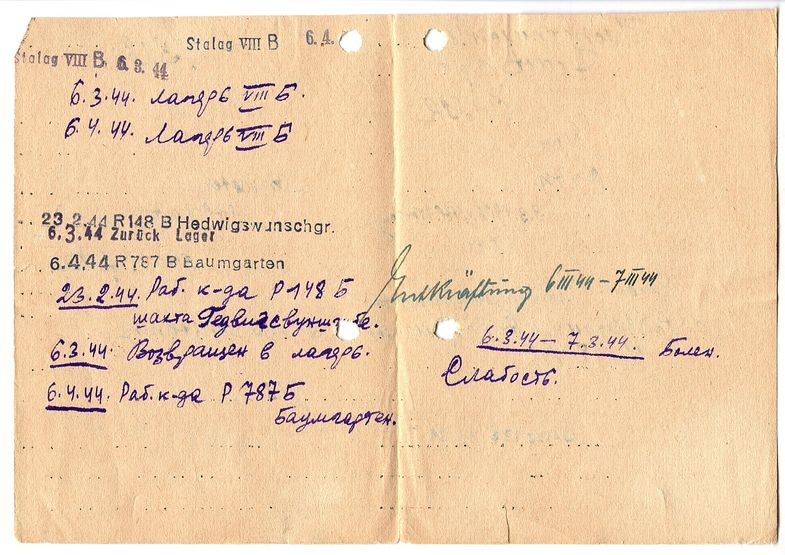 Stalag VIII B 6.4.
Stalag VIII B. 6.3.44
6.3.44. лагерь VIII Б.
6.4.44. Лагерь VIII Б
23.2.44 R148 B Hedwigswunschgr.
6.3.44 Zurück Lager
6.4.44 R787 B Baumgarten
23.2.44. Раб. к-да Р148 Б
шахта Гедвигсвуншгрубе.
6.3.44. Возвращен в лагерь.
6.4.44. Раб. к-да Р 787 Б
Баумгартен.
Entkräftung 6 III 44 – 7 III 44
6.3.44 – 7.3.44. Болен.
Слабость.